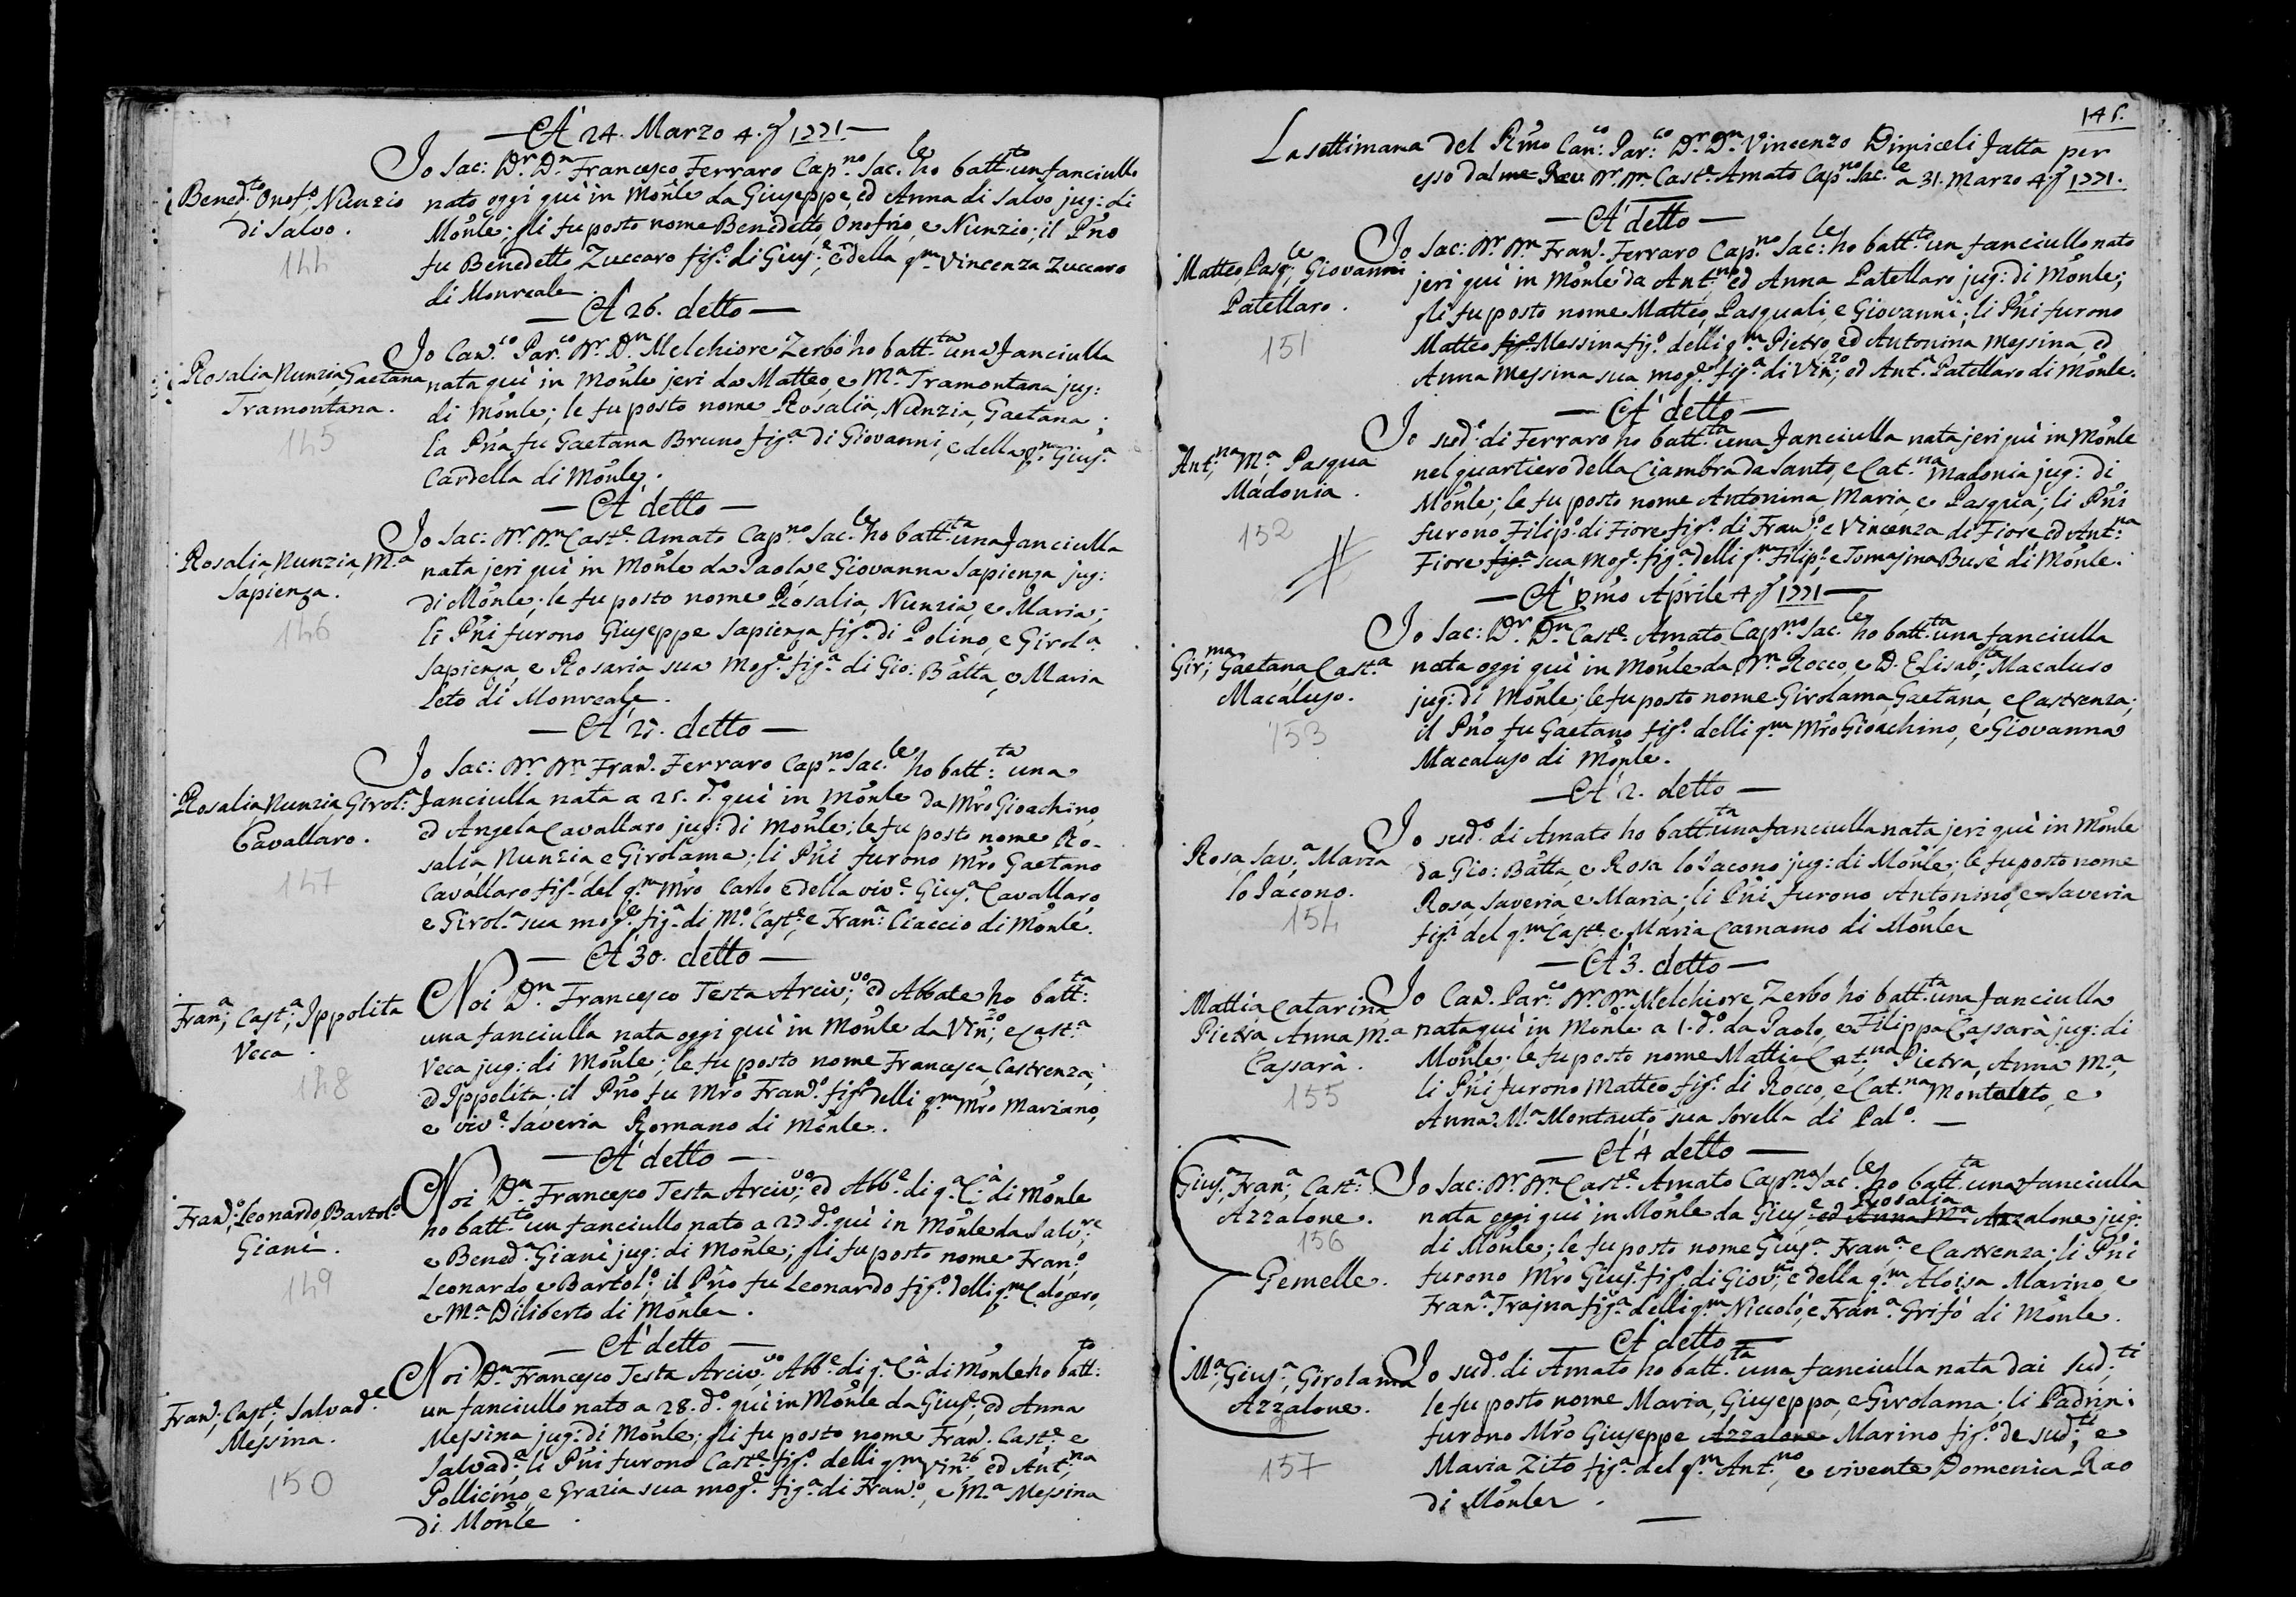 A' 24. Marzo 4. 1771.
Io Sac: Dr. Dn. Francesco Ferraro Cap.no Sac.le ho batt.to un fanciullo
Bened.to Onof.o Nunzio
di Salvo.
144
nato oggi quì in Monle da Giuseppe, ed Anna di Salvo jug: di
Monle; gli fu posto nome Benedetto, Onofrio, e Nunzio; il Pno
fu Benedetto Zuccaro fig.o di Gius.e, e della q.m Vincenza Zuccaro
di Monreale.
A' 26. detto
Io Can.co Par.co Dr. Dn. Melchiore Zerbo ho batt.ta una fanciulla
Rosalia Nunzia Gaetana
Tramontana.
145
nata quì in Monle jeri da Matteo, e M.a Tramontana jug:
di Monle; le fu posto nome Rosalia, Nunzia, Gaetana;
la Pna fu Gaetana Bruno fig.a di Giovanni, e della q.m Gius.a
Cardella di Monle.
A' detto
Io Sac: Dr. Dn. Cast.e Amato Cap.no Sac.le ho batt.ta una fanciulla
Rosalia, Nunzia, M.a
Sapienza.
146
nata jeri quì in Monle da Paolo, e Giovanna Sapienza jug:
di Monle; le fu posto nome Rosalia, Nunzia, e Maria;
li Pni furono Giuseppe Sapienza fig.o di Polino, e Girol.a
Sapienza, e Rosaria sua mog.e fig.a di Gio: Batta, e Maria
Leto di Monreale.
A' 27. detto
Io Sac: Dr. Dn. Fran. Ferraro Cap.no Sac.le ho batt.ta una
Rosalia Nunzia Girol.a
Cavallaro.
147
fanciulla nata a 25. d.o quì in Monle da Mro Gioachino,
ed Angela Cavallaro jug: di Monle; le fu posto nome Ro-
salia Nunzia e Girolama; li Pni furono Mro Gaetano
Cavallaro fig.o del q.m Mro Carlo, e della viv.e Gius.a Cavallaro,
e Girol.a sua mog.e fig.a di M.o Cast.e, e Fran.a Ciaccio di Monle.
A' 30. detto
Noi Dn. Francesco Testa Arciv.vo, ed Abbate ho batt.ta
Fran.a, Cast.a, Ippolita
Veca.
148
una fanciulla nata oggi quì in Monle da Vin.zo, e Cast.a
Veca jug: di Monle; le fu posto nome Francesca, Castrenza,
ed Ippolita; il Pno fu Mro Fran.o fig.o delli q.m Mro Mariano,
e viv.e Saveria Romano di Monle.
A' detto
Noi Dn. Francesco Testa Arciv.vo, ed Abb.e di q.a C.à di Monle
Fran.o, Leonardo, Bartol.o
Gianì.
149
ho batt.to un fanciullo nato a 27 d.o quì in Monle da Salv.re
e Bened.a Gianì jug: di Monle; gli fu posto nome Fran.o
Leonardo, e Bartol.o, il Pno fu Leonardo fig.o delli q.m Calogero,
e M.a Diliberto di Monle.
A' detto
Noi Dn. Francesco Testa Arciv.vo, Abb.e di q.a C.à di Monle ho batt.to
Fran.o, Cast.e, Salvad.e
Messina.
150
un fanciullo nato a 28. d.o quì in Monle da Gius.e, ed Anna
Messina jug: di Monle; gli fu posto nome Fran.o Cast.e e
Salvad.e, li Pni furono Cast.e fig.o delli q.m Vin.zo ed Ant.na
Pollicino, e Grazia sua mog.e fig.a di Fran.o, e M.a Messina
di Monle.
145.
La settimana del Rmo Can.co Par.co Dr. Dn. Vincenzo Dimiceli fatta per
esso dal me Rev. Dr. Dn. Cast.e Amato Cap.no Sac.le a 31. Marzo 4 1771.
A' detto
Io Sac: Dr. Dn. Fran. Ferraro Cap.no Sac.le ho batt.to un fanciullo nato
Matteo, Pasq.le, Giovanni
Patellaro.
151
jeri quì in Monle da Ant.no ed Anna Patellaro jug: di Monle;
gli fu posto nome Matteo, Pasquali, e Giovanni; li Pni furono
Matteo fig.o Messina fig.o delli q.m Pietro, ed Antonina Messina, ed
Anna Messina sua mog.e fig.a di Vin.zo, ed Ant.a Patellaro di Monle.
A' detto
Io sud.o di Ferraro ho batt.ta una fanciulla nata jeri quì in Monle
Ant.na M.a Pasqua
Madonia.
152
nel quartiero della Ciambra da Santo, e Cat.na Madonia jug: di
Monle; le fu posto nome Antonina, Maria, e Pasqua; li Pni
furono Filip.o di Fiore fig.o di Fran.o, e Vincenza di Fiore, ed Ant.na
Fiore fig.a sua mog.e fig.a delli q.m Filip.o, e Tomasina Busè di Monle.
A' pmo Aprile 4 1771
Io Sac: Dr. Dn. Cast.e Amato Cap.no Sac.le ho batt.ta una fanciulla
Gir.ma, Gaetana Cast.a
Macaluso.
153
nata oggi quì in Monle da Dn. Rocco, e D. Elisab.ta Macaluso
jug: di Monle; le fu posto nome Girolama, Gaetana, e Castrenza;
il Pno fu Gaetano fig.o delli q.m Mro Gioachino, e Giovanna
Macaluso di Monle.
A' 2. detto
Io sud.o di Amato ho batt.ta una fanciulla nata jeri quì in Monle
Rosa, Sav.a, Maria
lo Iacono.
154
da Gio: Batta, e Rosa lo Iacono jug: di Monle; le fu posto nome
Rosa, Saveria, e Maria; li Pni furono Antonino, e Saveria
fig.i del q.m Cast.e, e Maria Carnamo di Monle
A' 3. detto
Io Can. Par.co Dr. Dn. Melchiore Zerbo ho batt.ta una fanciulla
Mattia Catarina
Pietra Anna M.a
Cassarà.
155
nata quì in Monle a 1. d.o da Paolo, e Filippa Cassarà jug: di
Monle; le fu posto nome Mattia Cat.na Pietra, Anna M.a,
li Pni furono Matteo fig.o di Rocco, e Cat.na Montauto, e
Anna M.a Montauto sua sorella di Pal.o.
A' 4 detto
Io Sac: Dr. Dn. Cast.e Amato Cap.no Sac.le ho batt.ta una fanciulla
Gius.a, Fran.a, Cast.a
Azzalone.
156
Rosalia
nata oggi quì in Monle da Gius.e ed Anna M.a Azzalone jug:
di Monle; le fu posto nome Gius.a Fran.a e Castrenza; li Pni
Gemelle.
furono Mro Gius.e fig.o di Giov.ni, e della q.m Aloisa Marino, e
Fran.a Trajna fig.a delli q.m Niccolò, e Fran.a Grifò di Monle.
A' detto
Io sud.o di Amato ho batt.ta una fanciulla nata dai sud.ti
M.a, Gius.a, Girolama
Azzalone.
157
le fu posto nome Maria, Giuseppa, e Girolama; li Padrini
furono Mro Giuseppe Azzalone Marino fig.o de sud.ti, e
Maria Zito fig.a del q.m Ant.no, e vivente Domenica Rao
di Monle.